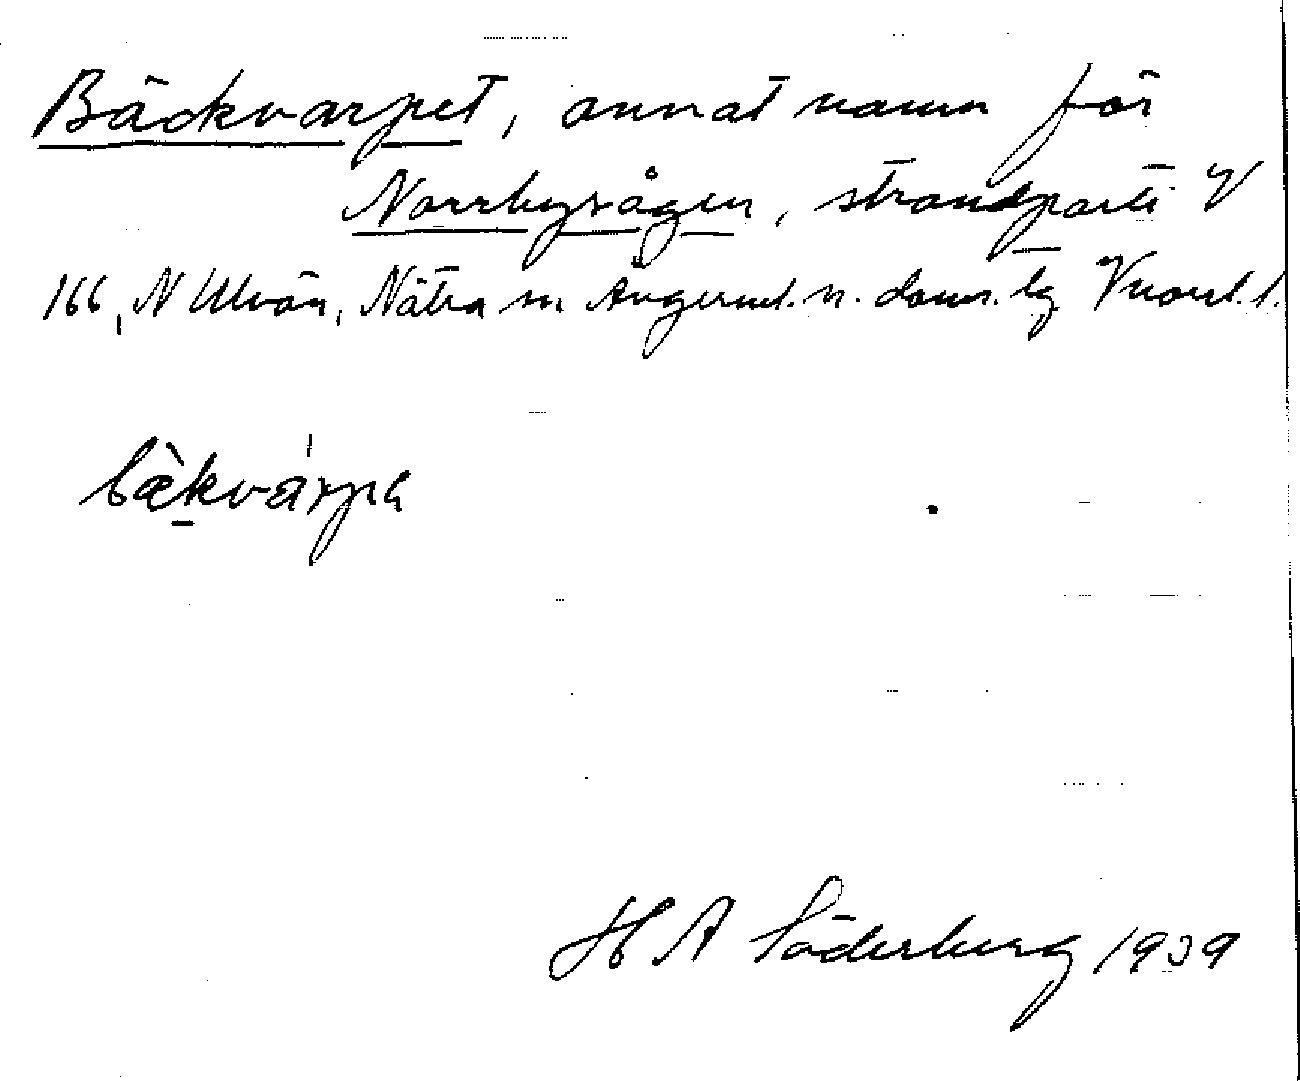 Bäckvarpet, annat namn för
Norrbyvågen, strandparti V
166, N Ulvön, Nätra sn. Ångerml. n. doms. lg Vnorrl. l.
bækvarpa
H A Söderberg 1939